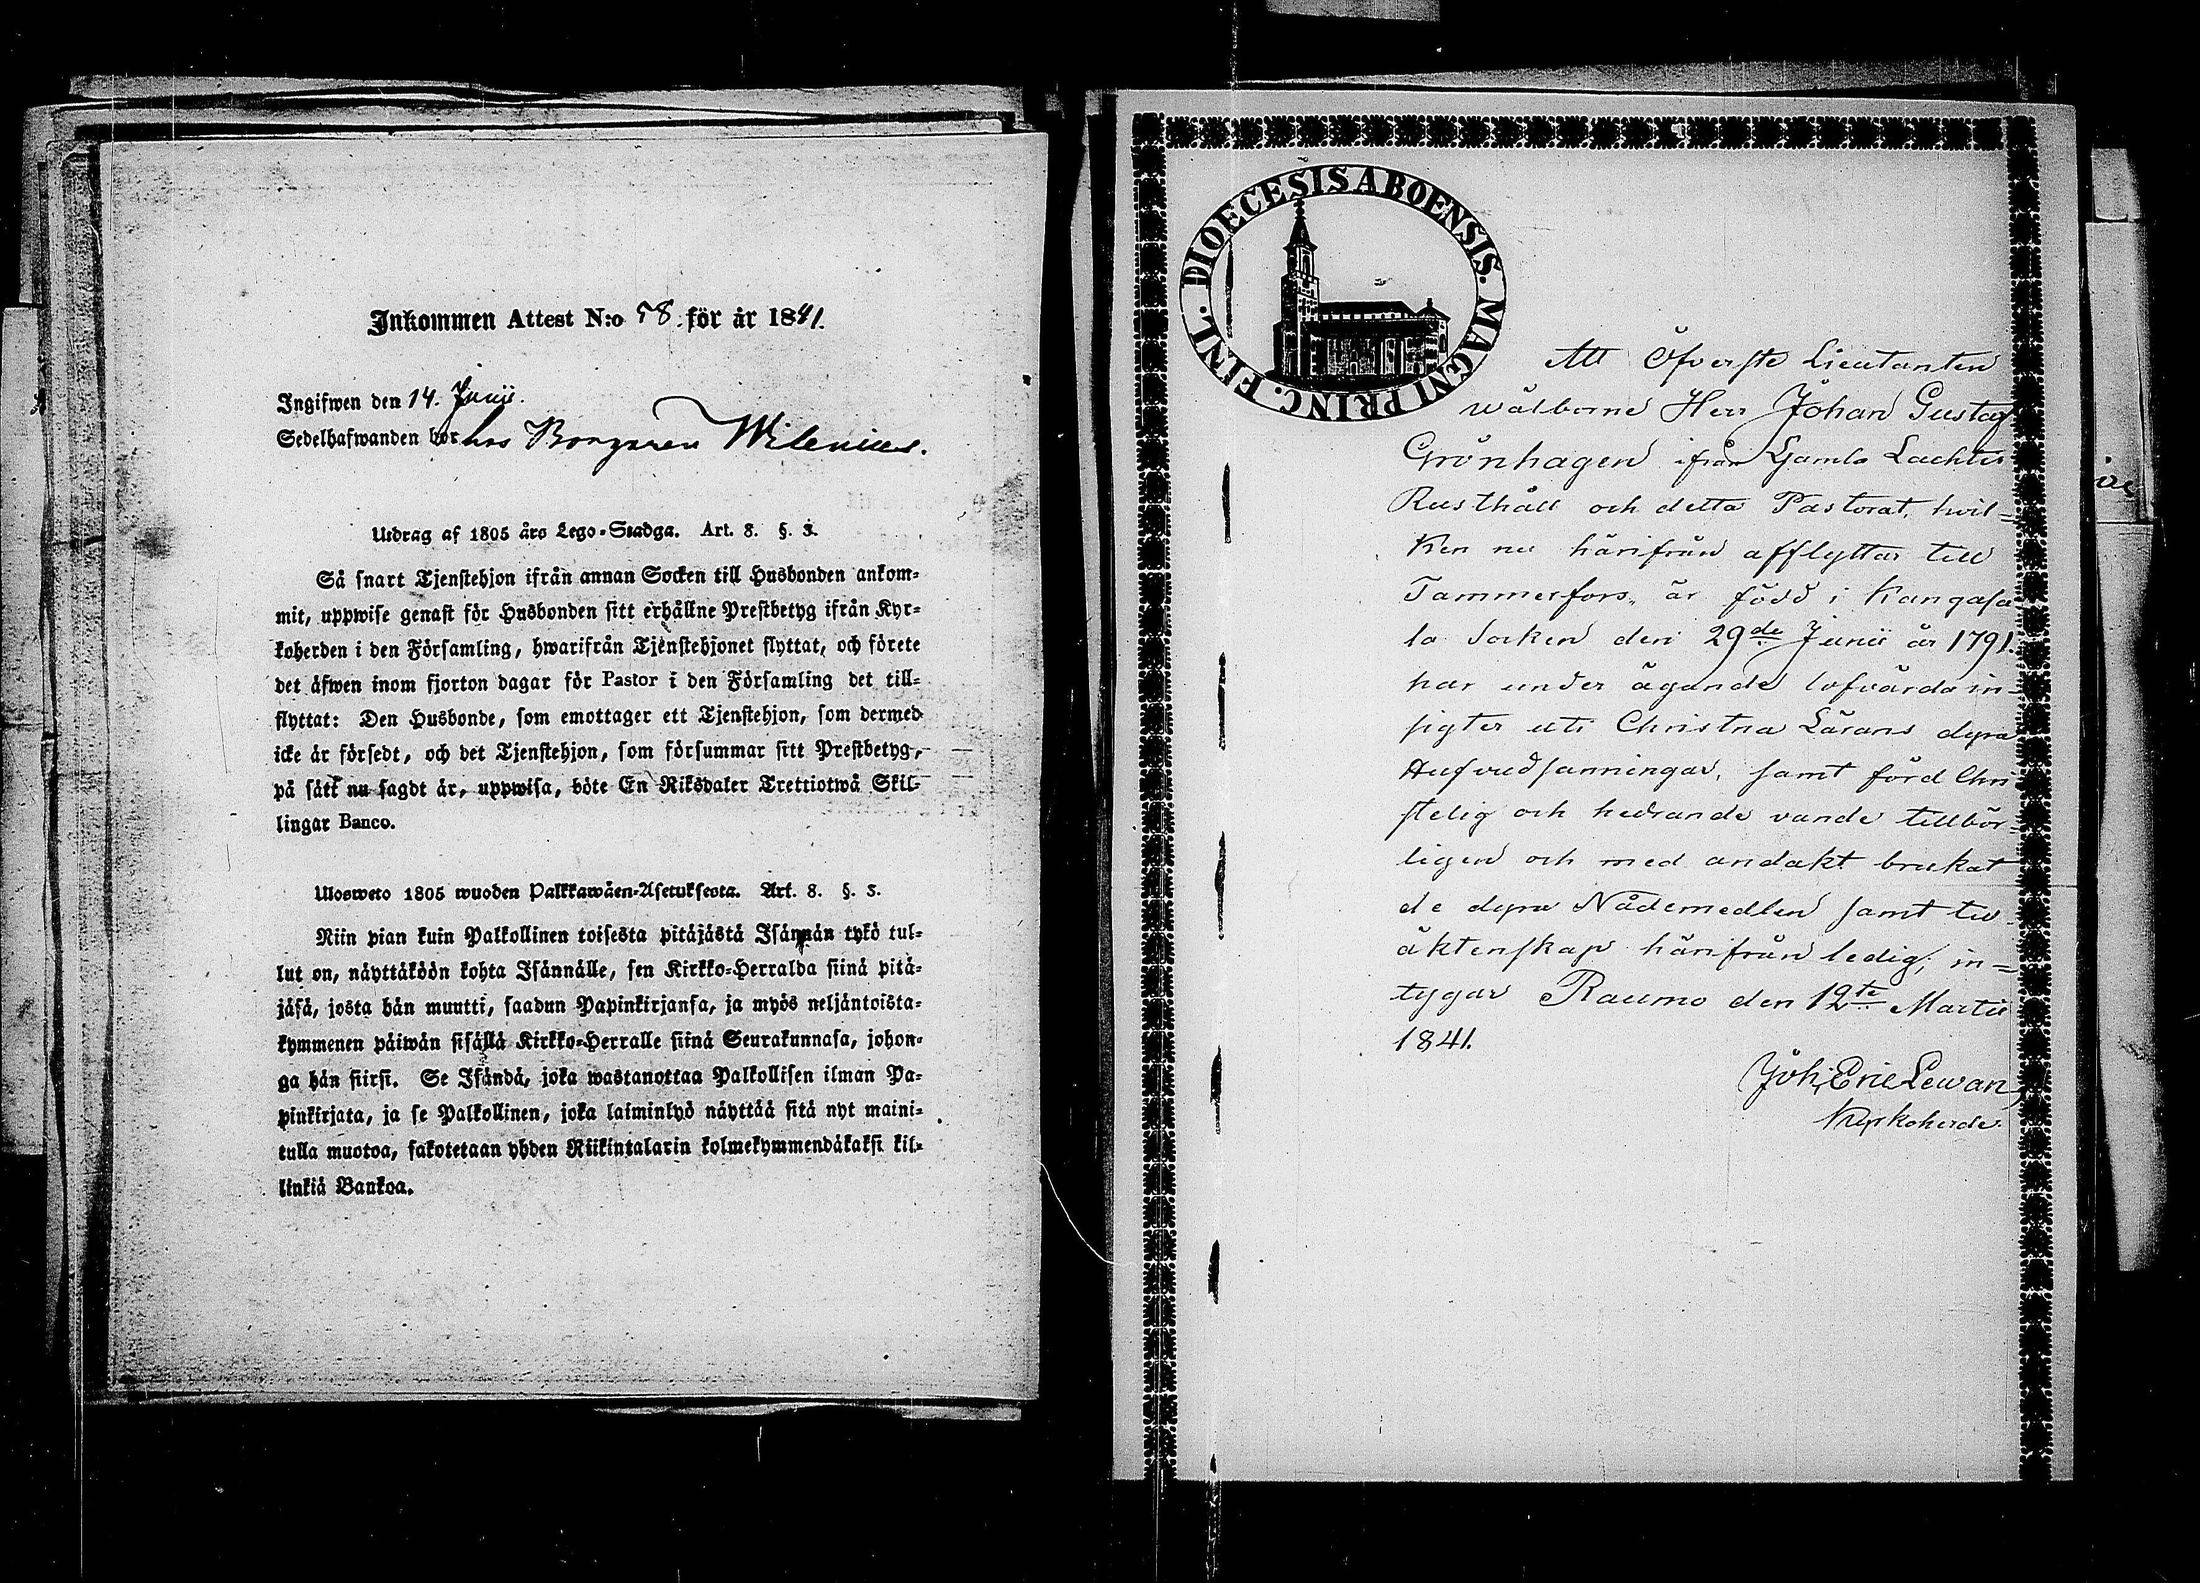 Inkommen Attest N:o 58. för år 1841.
Ingifwen den 14. Junii.
Sedelhafwanden bor hos Borgaren Wilenius.
Utdrag af 1805 års Lego-Stadga. Art. 8. §. 3.
Så snart Tjenstehjon ifrån annan Socken till Husbonden ankom-
mit, uppwise genast för Husbonden sitt erhållne Prestbetyg ifrån Kyr-
koherden i den Församling, hwarifrån Tjenstehjonet flyttat, och förete
det äfwen inom fjorton dagar för Pastor i den Församling det till-
flyttat: Den Husbonde, som emottager ett Tjenstehjon, som dermed
icke är försedt, och det Tjenstehjon, som försummar sitt Prestbetyg,
på sätt nu sagdt är, uppwisa, böte En Riksdaler Trettiotwå Skil-
lingar Banco.
Ulosweto 1805 wuoden Palkkawäen-Asetuksesta. Art. 8. §. 3.
Niin pian kuin Palkollinen toisesta pitäjästä Isännän tykö tul-
lut on, näyttäköön kohta Isännälle, sen Kirkko-Herralda siinä pitä-
jäsä, josta hän muutti, saadun Papinkirjansa, ja myös neljäntoista-
kymmenen päiwän sisällä Kirkko-Herralle siinä Seurakunnasa, johon-
ga hän siirsi. Se Isändä, joka wastanottaa Palkollisen ilman Pa-
pinkirjata, ja se Palkollinen, joka laiminlyö näyttää sitä nyt maini-
tulla muotoa, sakotetaan yhden Riikintalarin kolmekymmendäkaksi kil-
linkiä Bankoa.
DIOECESIS ABOENSIS. MAGNI PRINC. FINL.
Att Öfverste Lieutanten
wälborne Herr Johan Gustaf
Grönhagen ifrån Gamla Lachtis
Rusthåll och detta Pastorat, hvil-
ken nu härifrån afflyttar till
Tammerfors, är född i Kangasa-
la Socken den 29de Junii år 1791.
har under ägande lofvärda in-
sigter uti Christna Lärans dyra
Hufvudsanningar, samt förd Chri
stelig och hedrande vandel tillbör-
ligen och med andakt brukat
de dyra Nådemedlen samt till
äktenskap härifrån ledig; in-
tygar Raumo den 12te Martii
1841.
Joh. Eric Lewan,
Kyrkoherde.